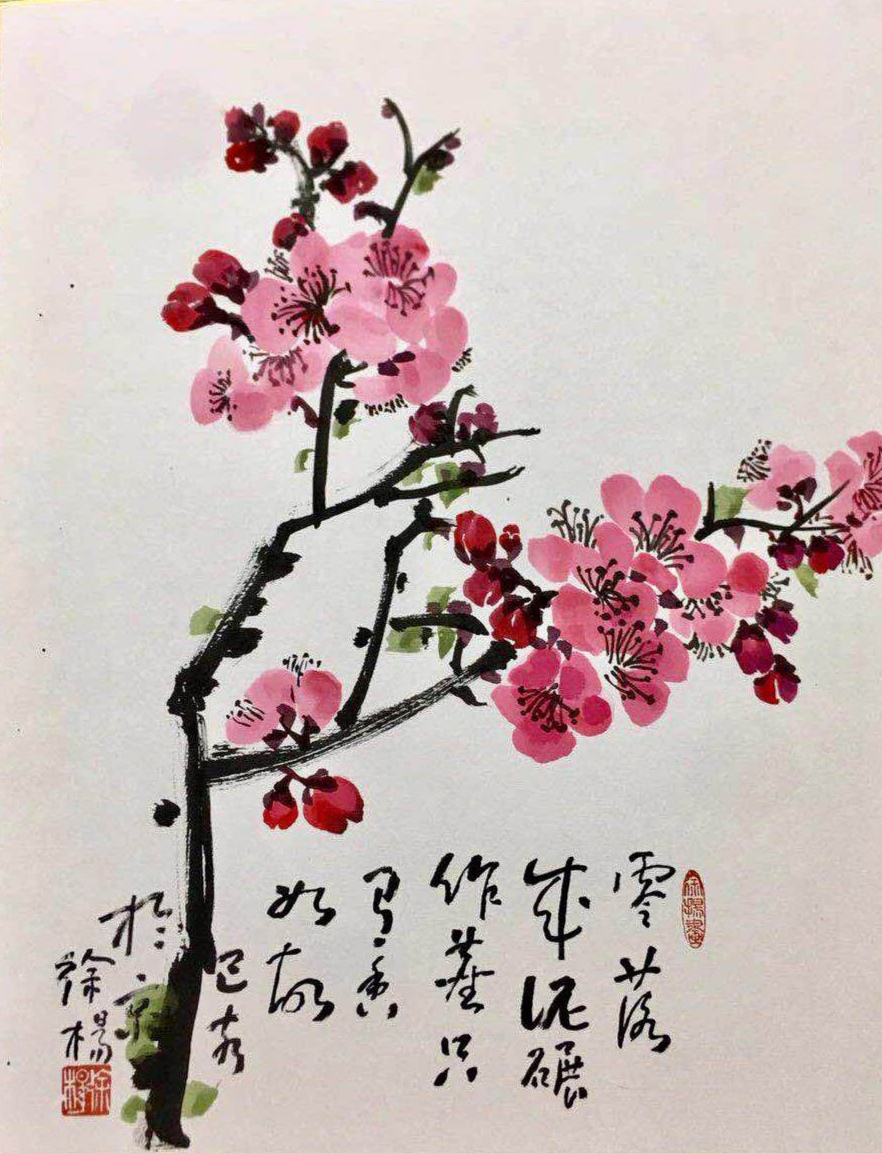 零落
成泥碾
作塵只
有香
如故
己亥
於京
徐楊
徐楊